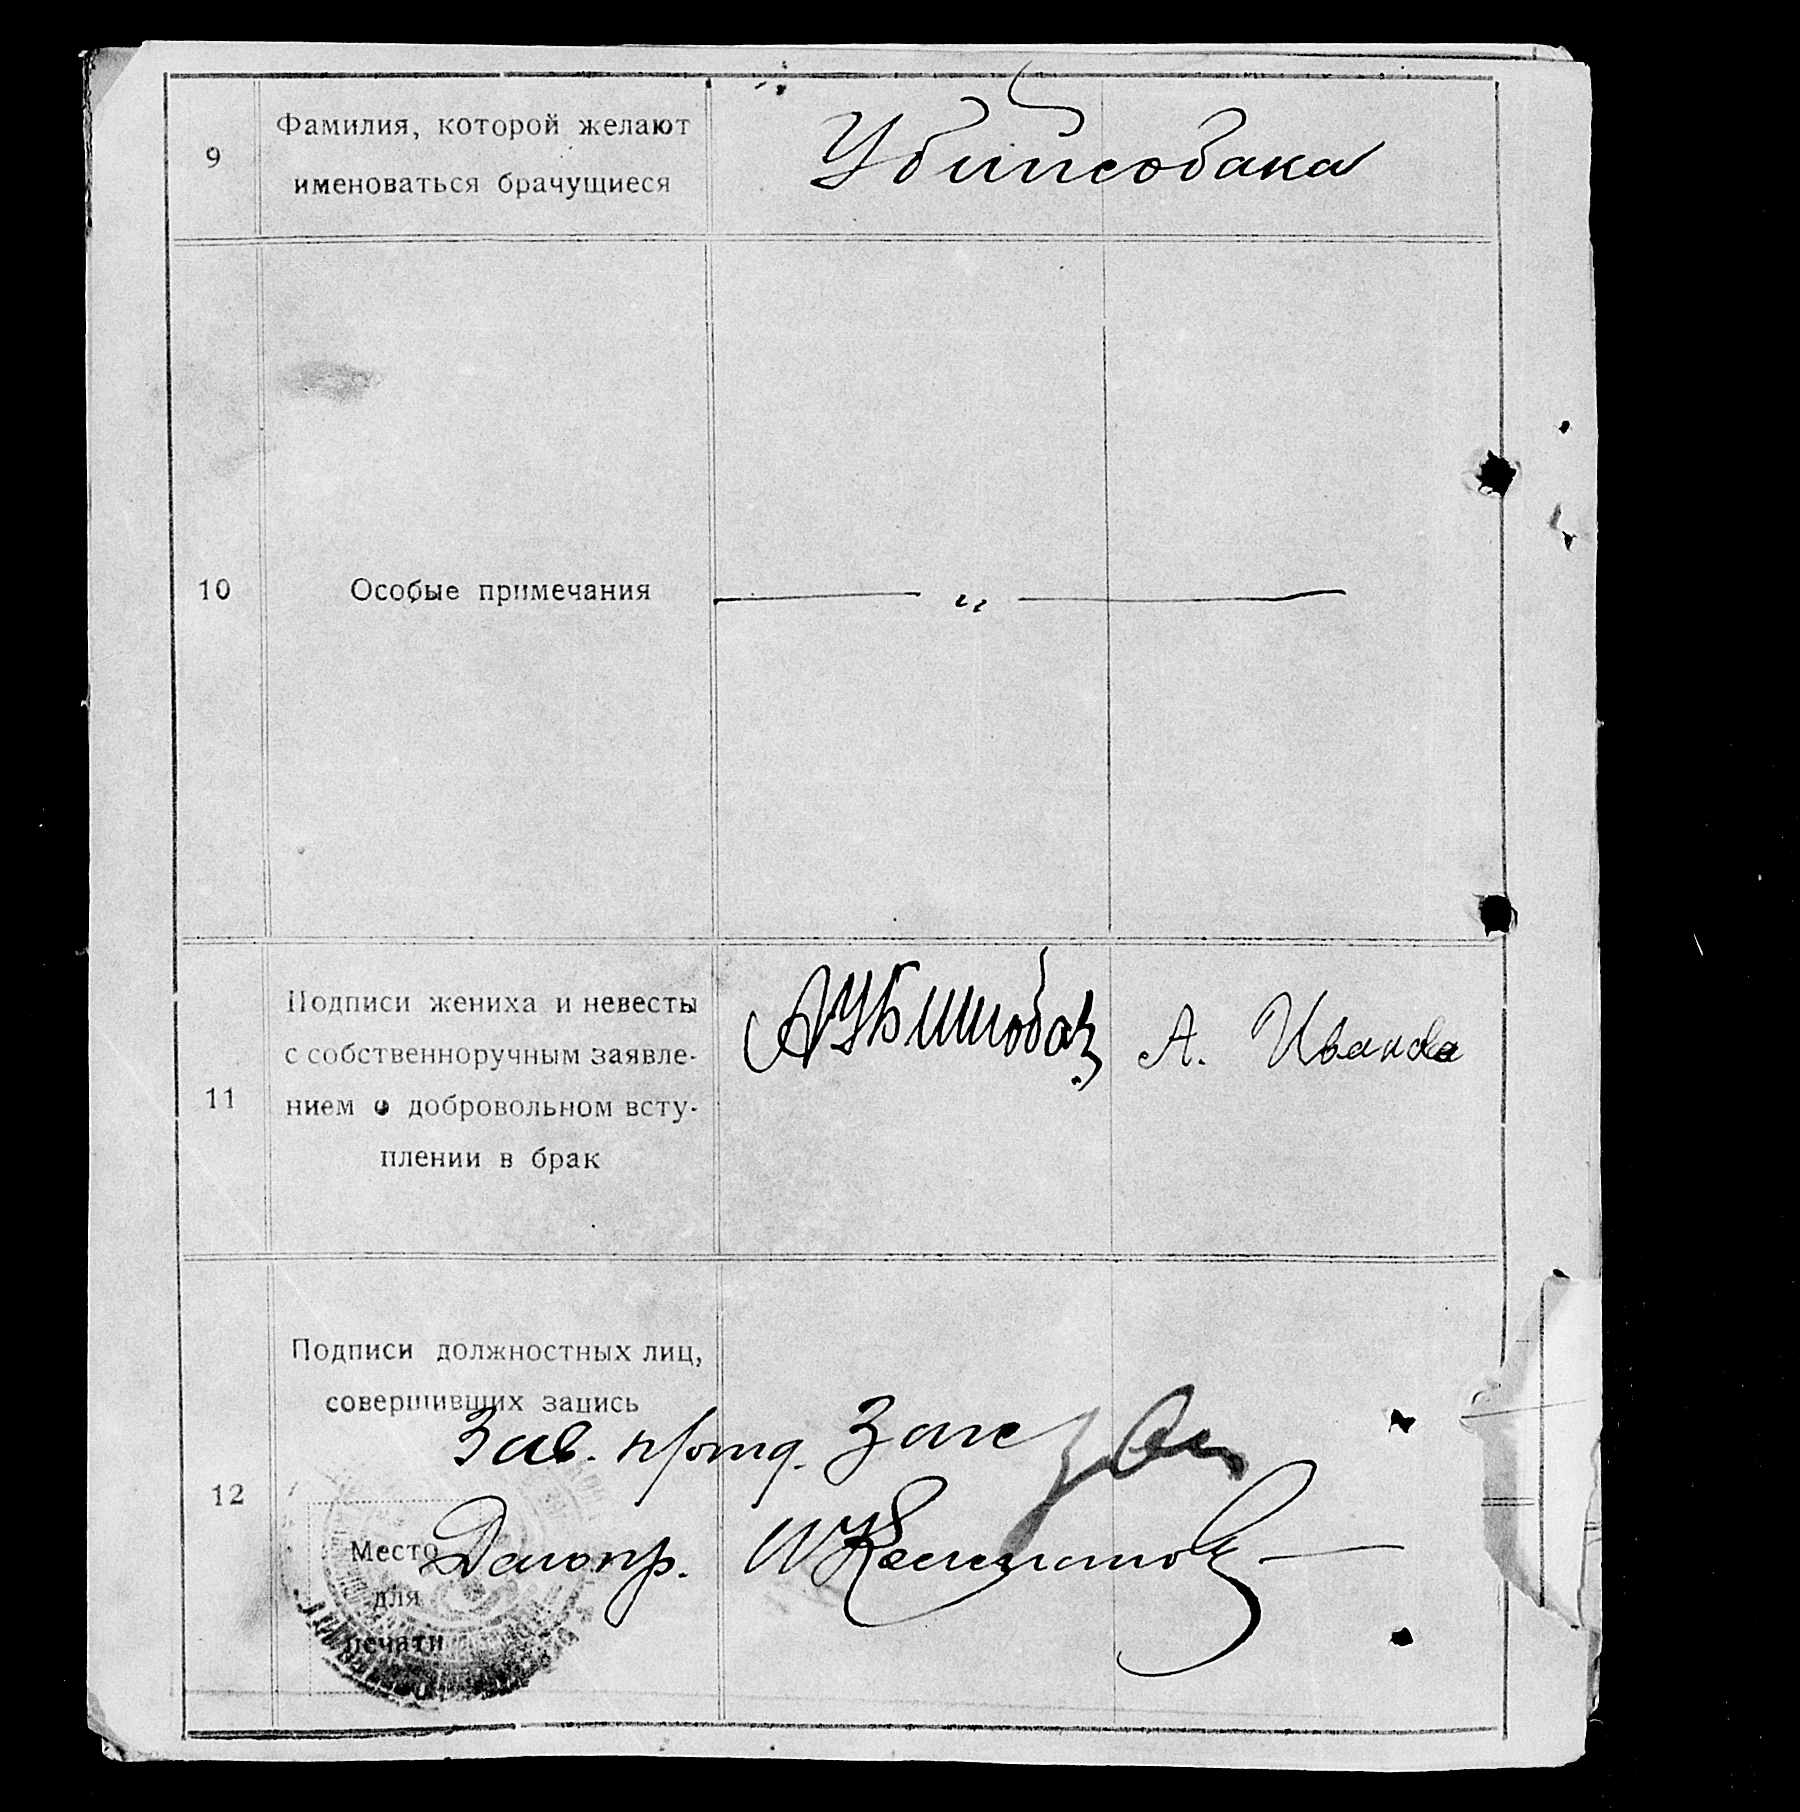 9
Фамилия, которой желают
именоваться брачущиеся
Убийсобака
10
Особые примечания
— " —
11
Подписи жениха и невесты
с собственноручным заявле-
нием о добровольном всту-
плении в брак
А. Иванова
12
Подписи должностных лиц,
совершивших запись
Зав.
Делопр.
Место
для
печати